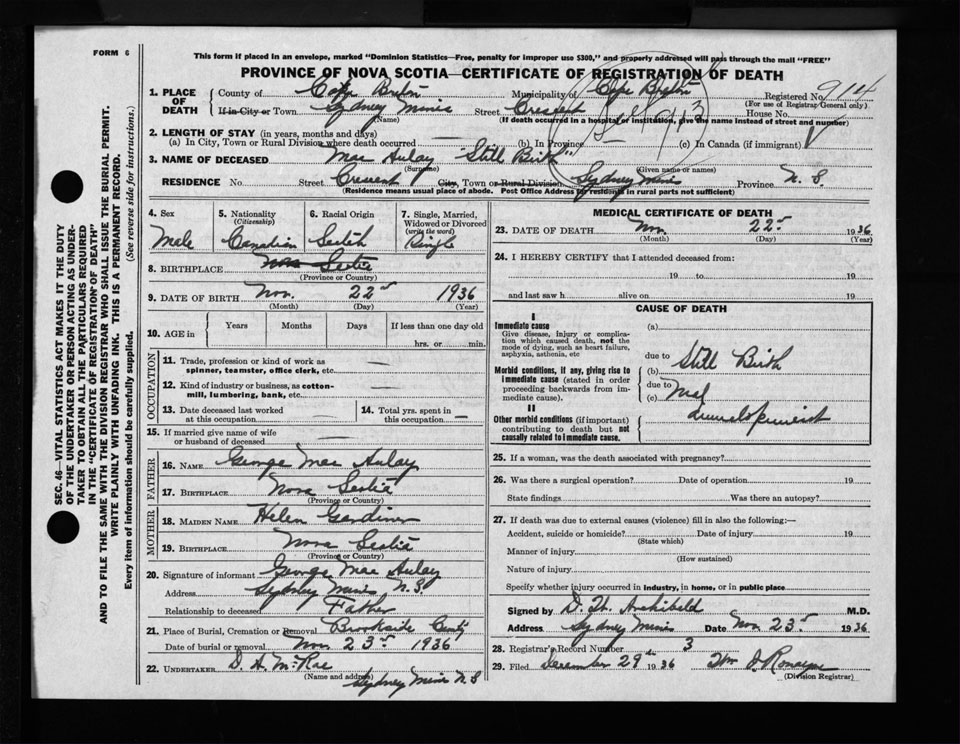 FORM 6
This form if placed in an envelope, marked "Dominion Statistics—Free, penalty for improper use $300," and properly addressed will pass through the mail "FREE"
PROVINCE OF NOVA SCOTIA—CERTIFICATE OF REGISTRATION OF DEATH
1. PLACE OF DEATH County of Cape Breton Municipality of Cape Breton Registered No. 914
(For use of Registrar General only.)
If in City or Town Sydney Mines Street Crescent House No.
(Name) (If death occurred in a hospital or institution, give the name instead of street and number)
2. LENGTH OF STAY (in years, months and days)
(a) In City, Town or Rural Division where death occurred — (b) In Province (c) In Canada (if immigrant)
3. NAME OF DECEASED Mac Aulay "Still Birth"
(Surname) (Given name or names)
RESIDENCE No. Street Crescent City, Town or Rural Division Sydney Mines Province N. S.
(Residence means usual place of abode. Post Office Address for residents in rural parts not sufficient)
4. Sex Male
5. Nationality (Citizenship) Canadian
6. Racial Origin Scotch
7. Single, Married, Widowed or Divorced (write the word) Single
8. BIRTHPLACE Nova Scotia
(Province or Country)
9. DATE OF BIRTH Nov. 22nd 1936
(Month) (Day) (Year)
10. AGE in Years Months Days If less than one day old
hrs. or min.
OCCUPATION
11. Trade, profession or kind of work as spinner, teamster, office clerk, etc. —
12. Kind of industry or business, as cotton-mill, lumbering, bank, etc. —
13. Date deceased last worked at this occupation — 14. Total yrs. spent in this occupation —
15. If married give name of wife or husband of deceased —
FATHER
16. NAME George Mac Aulay
17. BIRTHPLACE Nova Scotia
(Province or Country)
MOTHER
18. MAIDEN NAME Helen Gardiner
19. BIRTHPLACE Nova Scotia
(Province or Country)
20. Signature of informant George Mac Aulay
Address Sydney Mines N. S.
Relationship to deceased Father
21. Place of Burial, Cremation or Removal Brookside
Date of burial or removal Nov. 23rd 1936
22. UNDERTAKER D. A. McRae
(Name and address) Sydney Mines N S
MEDICAL CERTIFICATE OF DEATH
23. DATE OF DEATH Nov. 22nd 1936
(Month) (Day) (Year)
24. I HEREBY CERTIFY that I attended deceased from:
19 to 19
and last saw h alive on 19
CAUSE OF DEATH
I
Immediate cause (a)
Give disease, injury or complication which caused death, not the mode of dying, such as heart failure, asphyxia, asthenia, etc
due to Still Birth
Morbid conditions, if any, giving rise to immediate cause (stated in order proceeding backwards from immediate cause). (b)
due to
(c)
II
Other morbid conditions (if important) contributing to death but not causally related to immediate cause.
25. If a woman, was the death associated with pregnancy?
26. Was there a surgical operation? Date of operation 19
State findings Was there an autopsy?
27. If death was due to external causes (violence) fill in also the following:—
Accident, suicide or homicide? Date of injury 19
(State which)
Manner of injury
(How sustained)
Nature of injury
Specify whether injury occurred in industry, in home, or in public place
Signed by D. W. Archibald M.D.
Address Sydney Mines Date Nov 23rd 1936
28. Registrar's Record Number 3
29. Filed December 29th 1936
(Division Registrar)
SEC. 46—VITAL STATISTICS ACT MAKES IT THE DUTY
OF THE UNDERTAKER OR PERSON ACTING AS UNDER-
TAKER TO OBTAIN ALL THE PARTICULARS REQUIRED
IN THE "CERTIFICATE OF REGISTRATION OF DEATH"
AND TO FILE THE SAME WITH THE DIVISION REGISTRAR WHO SHALL ISSUE THE BURIAL PERMIT.
WRITE PLAINLY WITH UNFADING INK. THIS IS A PERMANENT RECORD.
Every item of information should be carefully supplied. (See reverse side for instructions.)